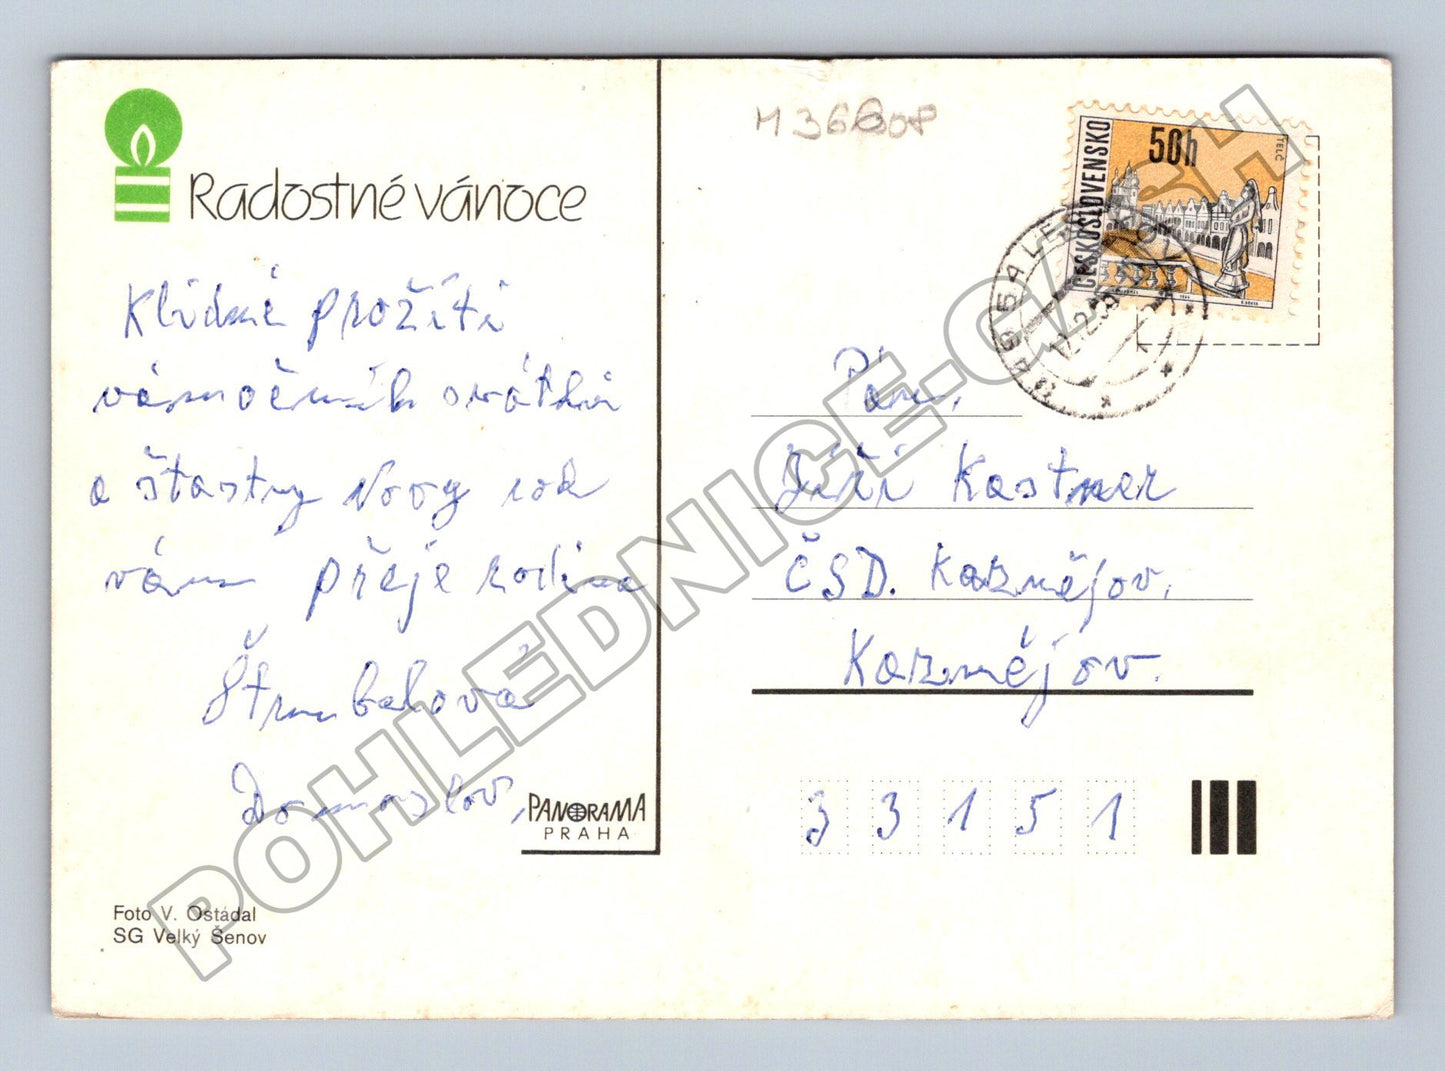 Radostné vánoce
Klidné prožití
vánočních svátků
a štastny Novy rok
vám přeje rodina
Štrunbalová
Domaslov,
PANORAMA
PRAHA
Foto V. Ostádal
SG Velký Šenov
M 36608
ČESKOSLOVENSKO
50h
TELČ
Pán,
Jiří Kastner
ČSD. Kaznějov.
Kaznějov.
3 3 1 5 1
POHLEDNICE-CZSK